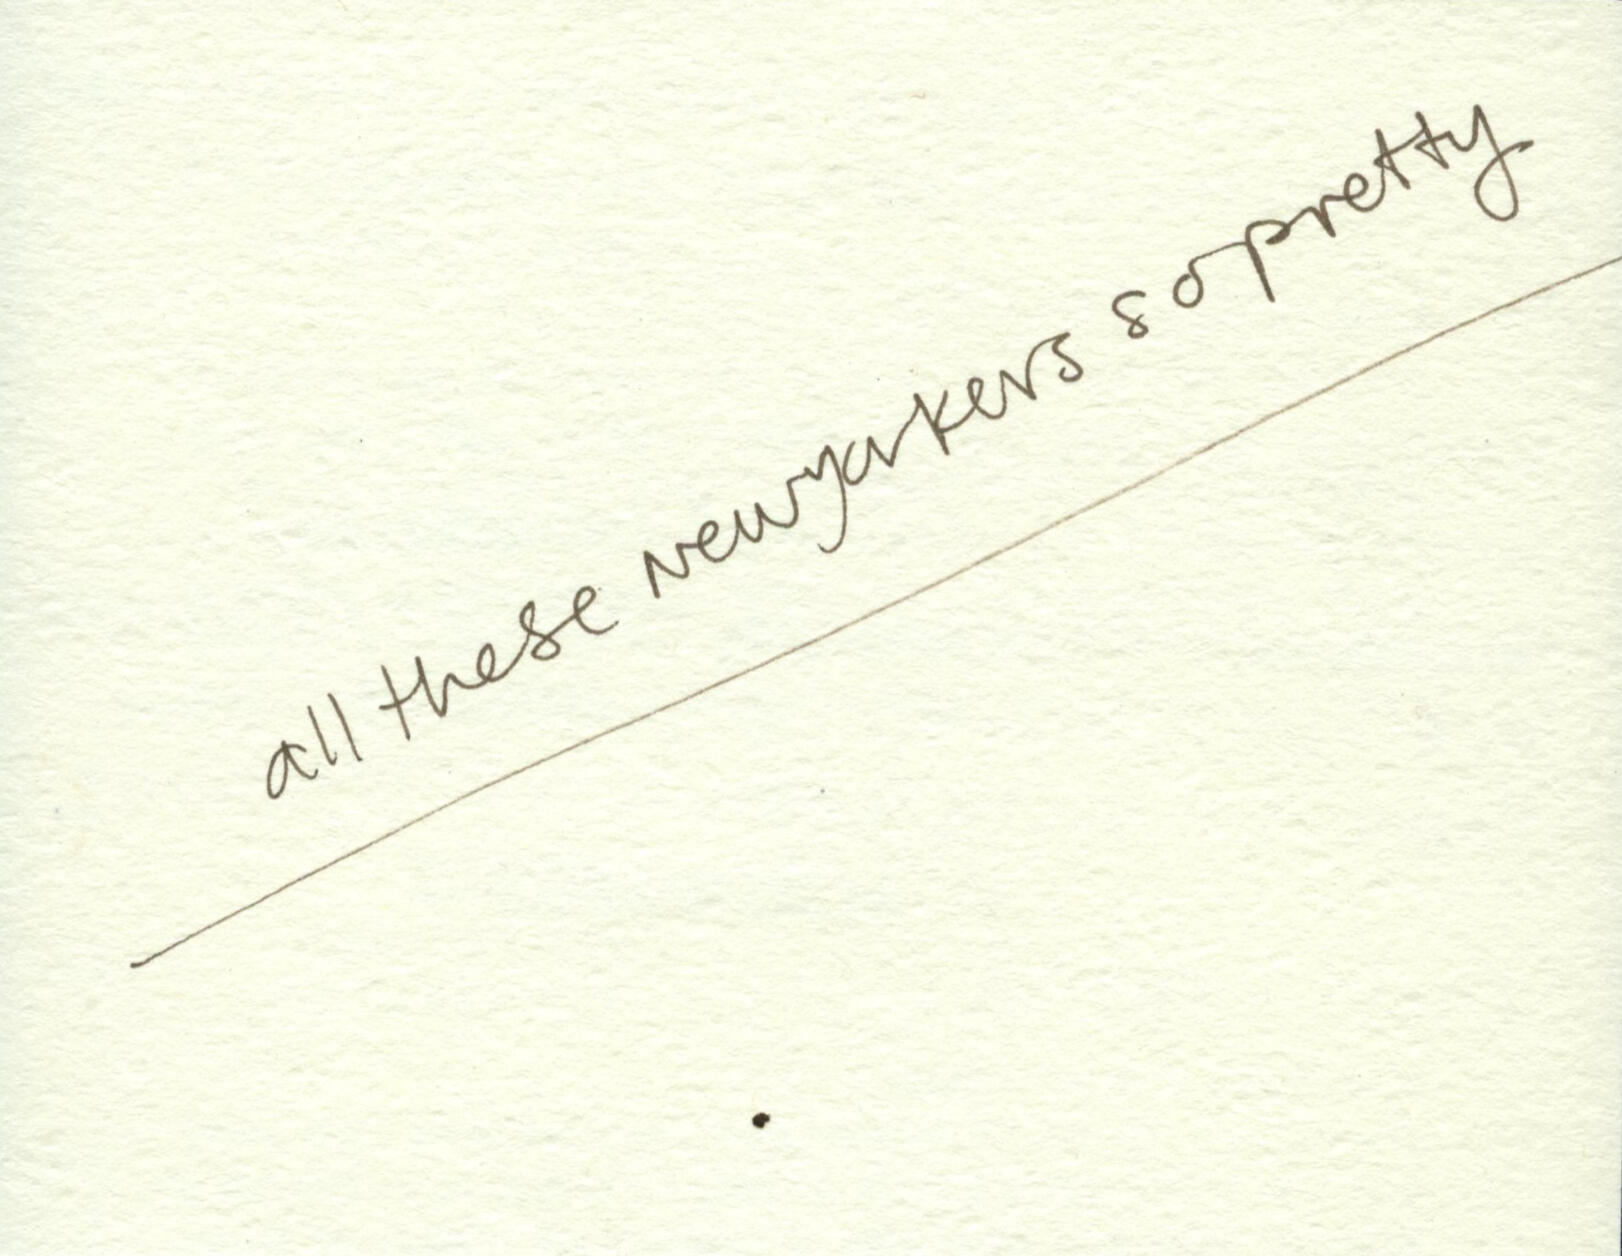 all these newyorkers so pretty